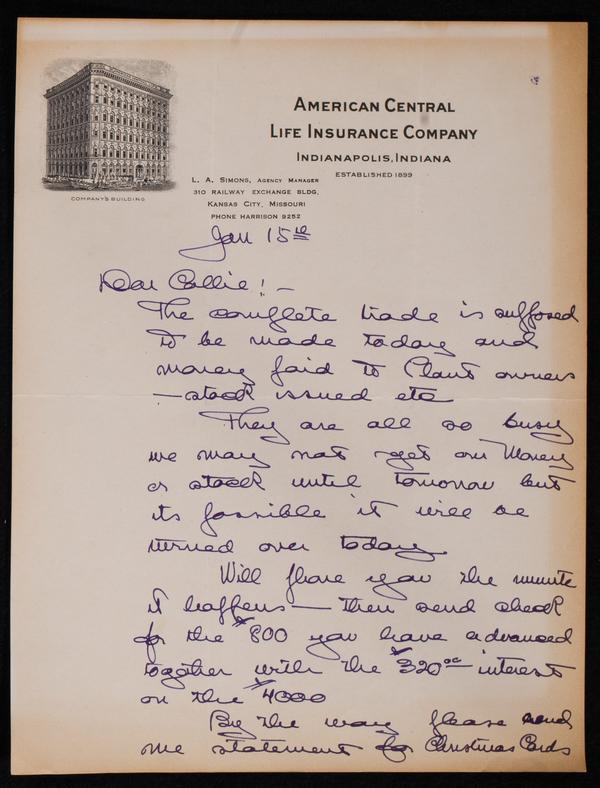 AMERICAN CENTRAL
LIFE INSURANCE COMPANY
INDIANAPOLIS, INDIANA
ESTABLISHED 1899
COMPANY'S BUILDING
L. A. SIMONS, AGENCY MANAGER
310 RAILWAY EXCHANGE BLDG,
KANSAS CITY, MISSOURI
PHONE HARRISON 9252
Jan 15th
Dear Collie! –
The complete trade is supposed
to be made today and
money paid to Plant owners
– stock issued etc
They are all so busy
we may not get our Money
or stock until tomorrow but
its possible it will be
turned over today.
Will phone you the minute
it happens – then send check
for the $800 you have advanced
together with the $320 00 interest
on the $4000
By the way please send
me statement for Christmas Cards